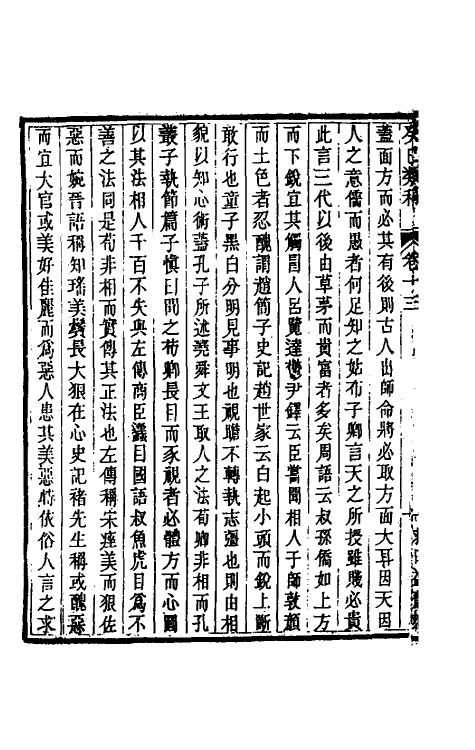 癸巳類稿 卷十三
蓋面方而必其有後則古人出師命將必取方面大耳因天因
人之意儒而愚者何足知之姑布子卿言天之所授雖賤必貴
此言三代以後由草茅而貴富者多矣周語云叔孫僑如上方
而下銳宜其觸冒人呂覽達鬱尹鐸云臣嘗聞相人于師敦顔
而土色者忍醜謂趙簡子史記趙世家云白起小頭而銳上斷
敢行也童子黑白分明見事明也視瞻不轉執志彊也則由相
貌以知心術蓋孔子所述堯舜文王取人之法荀卿非相而孔
叢子執節篇子愼曰聞之荀卿長目而豕視者必體方而心圓
以其法相人千百不失與左傳商臣蠭目國語叔魚虎目爲不
善之法同是荀非相而實傳其正法也左傳稱宋痤美而狠佐
惡而婉晉語稱知瑤美鬢長大狠在心史記褚先生稱或醜惡
而宜大官或美好佳麗而爲惡人患其美惡特依俗人言之求